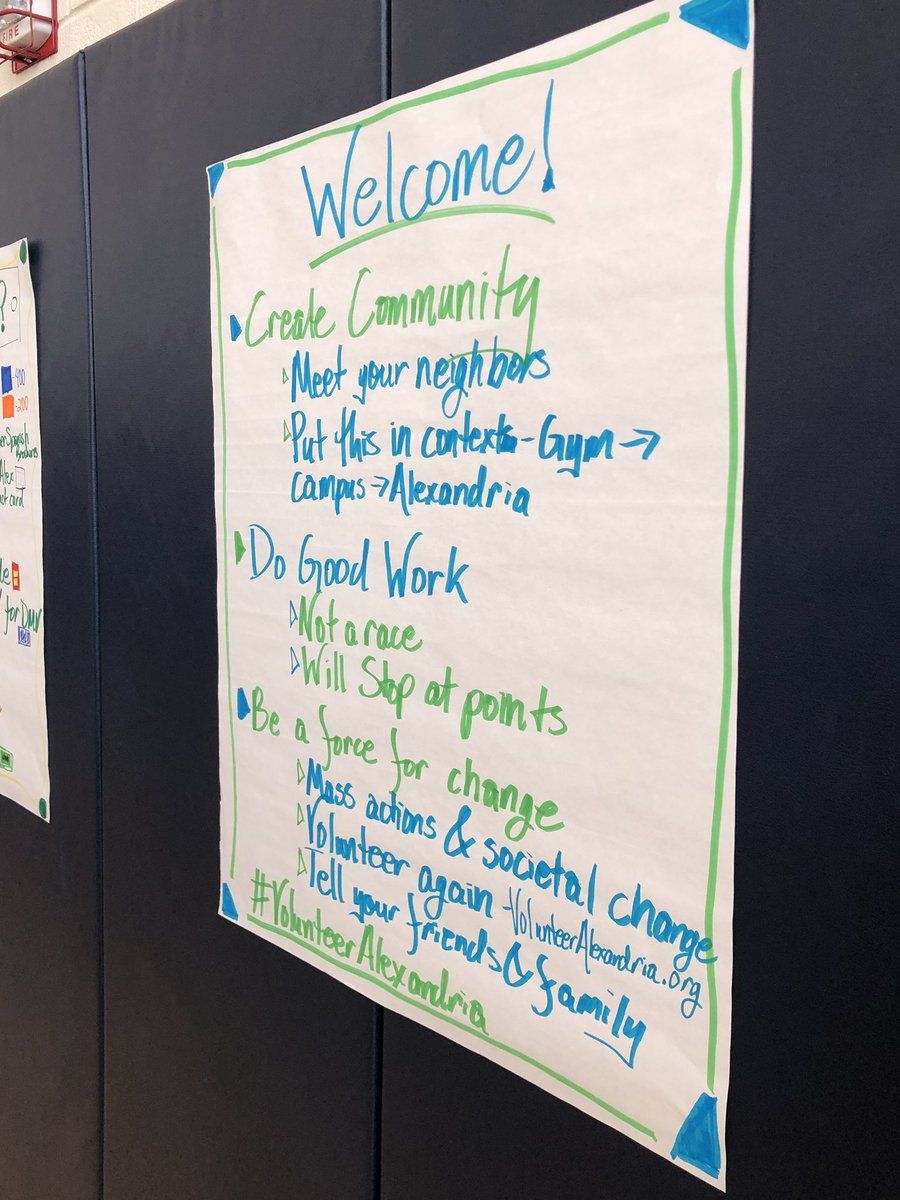 FIRE
Welcome!
Create Community
Meet your neighbors
Put this in context - Gym →
campus → Alexandria
Do Good Work
Not a race
Will Stop at points
Be a force for change
Mass actions & societal change
Volunteer again - VolunteerAlexandria.org
Tell your friends & family
#VolunteerAlexandria
?
-400
-200
Spanish
Alex
card
for DMV